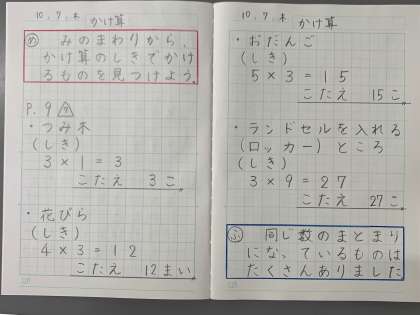 10.7.木 かけ算
め みのまわりから、
かけ算のしきでかけ
るものを見つけよう。
P.9 ⚠
・つみ木
(しき)
3×1=3
こたえ 3こ
・花びら
(しき)
4×3=12
こたえ 12まい
10.7.木 かけ算
・おだんご
(しき)
5×3=15
こたえ 15こ
・ランドセルを入れる
(ロッカー)ところ
(しき)
3×9=27
こたえ 27こ
ふ 同じ数のまとまり
になっているものは
たくさんありました